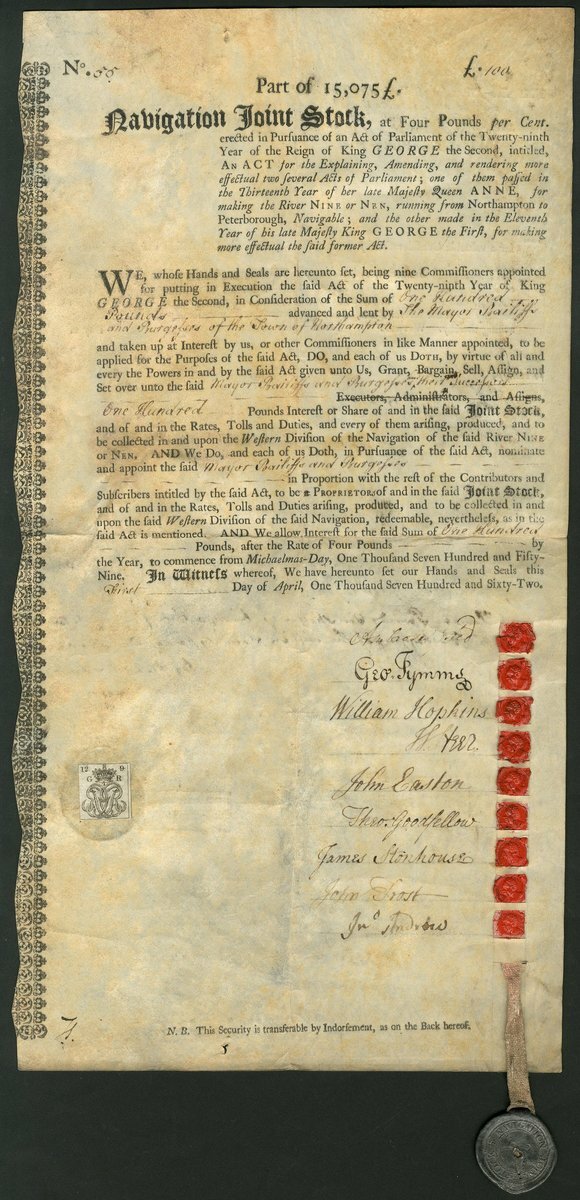 No. 55
£. 100
Part of 15,075£.
Navigation Joint Stock, at Four Pounds per Cent.
erected in Pursuance of an Act of Parliament of the Twenty-ninth
Year of the Reign of King GEORGE the Second, intitled,
AN ACT for the Explaining, Amending, and rendering more
effectual two several Acts of Parliament; one of them passed in
the Thirteenth Year of her late Majesty Queen ANNE, for
making the River NINE or NEN, running from Northampton to
Peterborough, Navigable; and the other made in the Eleventh
Year of his late Majesty King GEORGE the First, for making
more effectual the said former Act.
WE, whose Hands and Seals are hereunto set, being nine Commissioners appointed
for putting in Execution the said Act of the Twenty-ninth Year of King
GEORGE the Second, in Consideration of the Sum of One Hundred
Pounds advanced and lent by The Mayor Bailiffs
and Burgesses of the Town of Northampton
and taken up at Interest by us, or other Commissioners in like Manner appointed, to be
applied for the Purposes of the said Act, DO, and each of us DOTH, by virtue of all and
every the Powers in and by the said Act given unto Us, Grant, Bargain, Sell, Assign, and
Set over unto the said Mayor Bailiffs and Burgesses, their Successors
Executors, Administrators, and Assigns,
One Hundred Pounds Interest or Share of and in the said Joint Stock,
and of and in the Rates, Tolls and Duties, and every of them arising, produced, and to
be collected in and upon the Western Division of the Navigation of the said River NINE
or NEN. AND We Do, and each of us Doth, in Pursuance of the said Act, nominate
and appoint the said Mayor Bailiffs and Burgesses
in Proportion with the rest of the Contributors and
Subscribers intitled by the said Act, to be a PROPRIETORs of and in the said Joint Stock,
and of and in the Rates, Tolls and Duties arising, produced, and to be collected in and
upon the said Western Division of the said Navigation, redeemable, nevertheless, as in the
said Act is mentioned. AND We allow Interest for the said Sum of One Hundred
Pounds, after the Rate of Four Pounds by
the Year, to commence from Michaelmas-Day, One Thousand Seven Hundred and Fifty-
Nine. In Witness whereof, We have hereunto set our Hands and Seals this
First Day of April, One Thousand Seven Hundred and Sixty-Two.
Geo. Tymms
William Hopkins
John Easton
Theo. Goodfellow
James Stonhouse
John Frost
Jno Andrew
12 9
G R
N. B. This Security is transferable by Indorsement, as on the Back hereof.